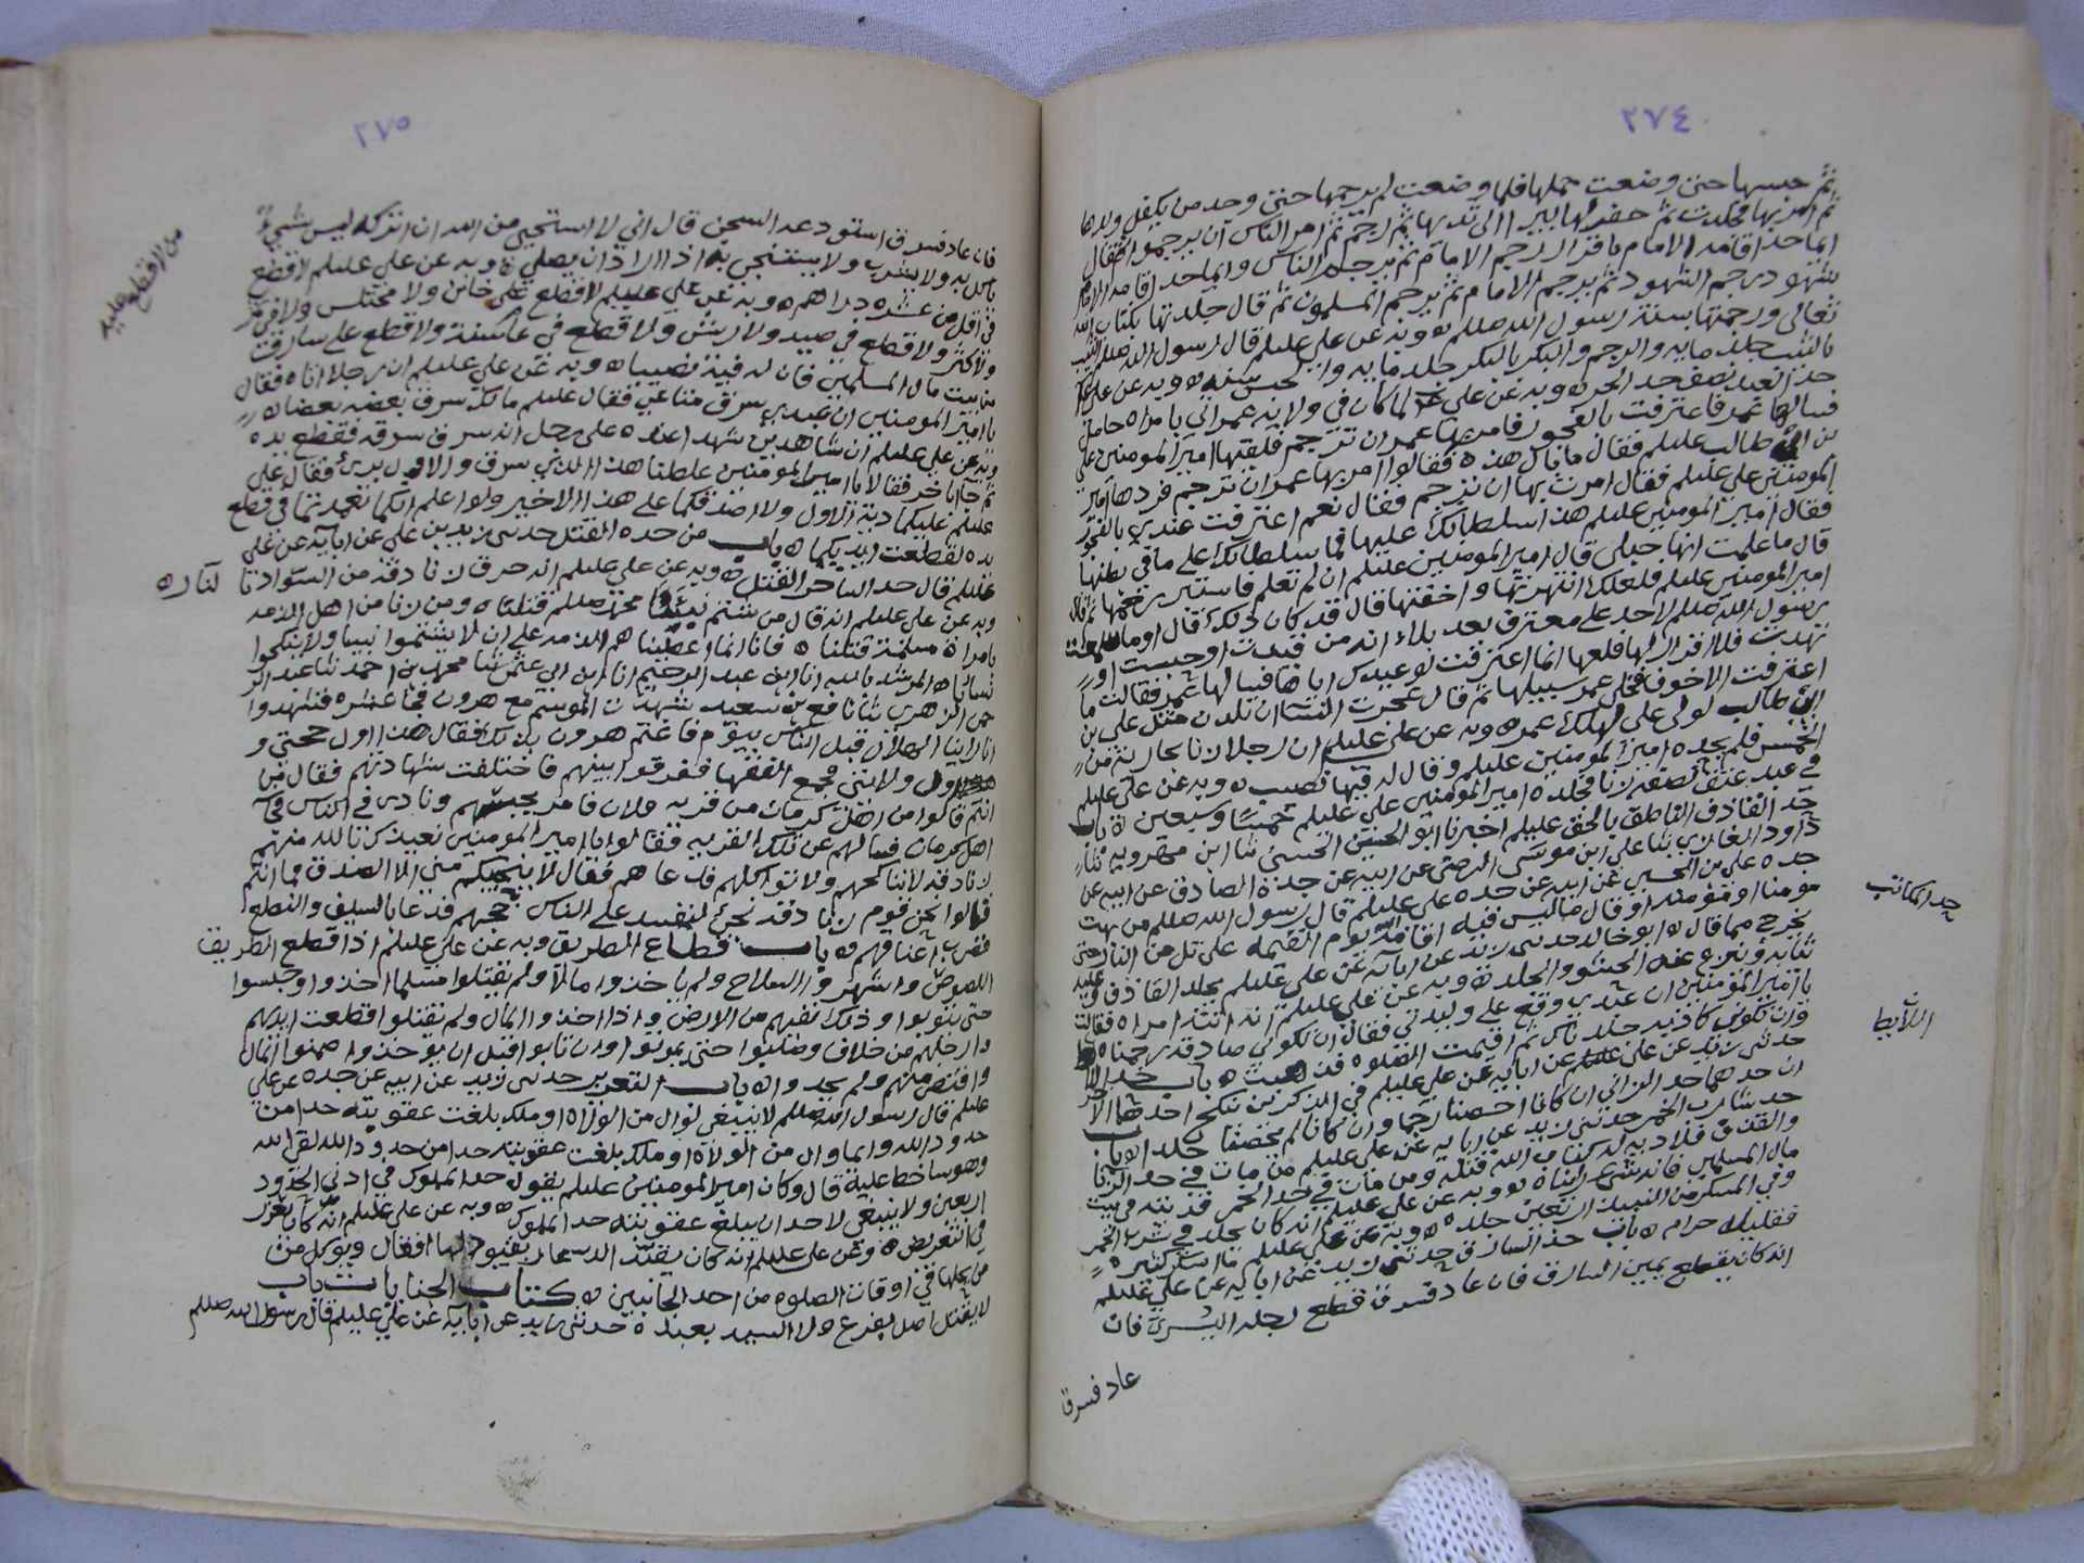 ٢٧٤
ثم حبسها حتى وضعت حملها فلما وضعت لم يرجمها حتى وجد من يكفل ولدها
ثم امر بها فجلدت ثم حفر لها بيرا الى ثديها ثم رجم ثم امر الناس ان يرجموا فقال
ايما حد اقامه الامام باقرار رجم الامام ثم يرجم الناس وايما حد اقامه الامام
بشهود رجم الشهود ثم يرجم الامام ثم يرجم المسلمون ثم قال جلدتها بكتاب الله
تعالى ورجمتها بسنة رسول الله صللم ه وبه عن علي عليلم قال رسول الله صللم الثيب
بالثيب جلد مايه والرجم والبكر بالبكر جلد مايه والحبس سنه ه وبه عن علي
حد العبد نصف حد الحر ه وبه عن علي لما كان في ولاية عمر اتي بامراه حامل
فسالها عمر فاعترفت بالفجور فامر بها عمر ان ترجم فلقيها امير المومنين علي
بن ابي طالب عليلم فقال ما بال هذه فقالوا امر بها عمر ان ترجم فردها امير
المومنين علي عليلم فقال امرت بها ان ترجم فقال نعم اعترفت عندي بالفجور
فقال امير المومنين عليلم هذا سلطانك عليها فما سلطانك على ما في بطنها
قال ما علمت انها حبلى قال امير المومنين عليلم ان لم تعلم فاستبر رحمها ثم قال
امير المومنين عليلم فلعلك انتهرتها واخفتها قال قد كان ذلك قال اوما سمعت
رسول الله صللم لا حد على معترف بعد بلاء انه من قيدت او حبست او
تهددت فلا اقرار لها فلعلها انما اعترفت لوعيدك اياها فسالها عمر فقالت ما
اعترفت الا خوفا فخلى عمر سبيلها ثم قال عجزت النساء ان تلدن مثل علي بن
ابي طالب لولا علي لهلك عمر ه وبه عن علي عليلم ان رجلا زنا بجارية من
الخمس فلم يحده امير المومنين عليلم وقال له فيها نصيب ه وبه عن علي عليلم
في عبد عتق نصفه زنا فجلده امير المومنين علي عليلم خمسًا وسبعين ه باب
حد القاذف الناطق بالحق عليلم اخبرنا ابو الحسين الحسني ثنا ابن مهرويه ثنا
داود الغازي ثنا علي ابن موسى الرضى عن ابيه عن جده الصادق عن ابيه عن
جده علي بن الحسين عن ابيه عن جده علي عليلم قال رسول الله صللم من بهت
مومنا او مومنه او قال ما ليس فيه اقامه الله يوم القيمه على تل من النار حتى
يخرج مما قال ه ابو خالد حدثني زيد عن ابايه عن علي عليلم يجلد القاذف وعليه
ثيابه وينزع عنه الحشو والجلد ه وبه عن علي عليلم انه اتته امراه فقالت
يا امير المومنين ان عبدي وقع علي وليدتي فقال ان تكوني صادقه رجمناه
وان تكوني كاذبه جلدناك ثم اقيمت الصلوه فذهبت ه باب حد الا
حدثني زيد بن علي عن ابايه عن علي عليلم في الذكرين ينكح احدهما الاخر
ان حدهما حد الزاني ان كانا احصنا رجما وان كانا لم يحصنا جلدا ه باب
حد شارب الخمر حدثني زيد عن ابايه عن علي عليلم من مات في حد الزنا
والقذف فلا ديه له كتاب الله قتله ومن مات في حد الخمر فديته في بيت
مال المسلمين فانه شي رايناه ه وبه عن علي عليلم انه كان يجلد في شرب الخمر
وفي المسكر من النبيذ اربعين جلده ه وبه عن علي عليلم ما اسكر كثيره
فقليله حرام ه باب حد السارق حدثني زيد عن ابايه عن علي عليلم
انه كان يقطع يمين السارق فان عاد فسرق قطع رجله اليسرى فان
عاد فسرق
حد المكاتب
اللايط
٢٧٥
فان عاد فسرق استودعه السجن قال اني لا استحيي من الله ان اتركه ليس شيء
ياكل به ولا يشرب ولا يستنجي به اذا اراد ان يصلي ه وبه عن علي عليلم لا قطع
في اقل من عشره دراهم ه وبه عن علي عليلم لا قطع على خاين ولا مختلس ولا في ثمر
ولا كثر ولا قطع في صيد ولا ريش ولا قطع في عام سنة ولا قطع على سارق
من بيت مال المسلمين فان له فيه نصيبا ه وبه عن علي عليلم ان رجلا اتاه فقال
يا امير المومنين ان عبدي سرق متاعي فقال عليلم مالك سرق بعضه بعضا ه
وبه عن علي عليلم ان شاهدين شهدا عنده على رجل انه سرق سرقه فقطع يده
ثم جاءا باخر فقالا يا امير المومنين غلطنا هذا الذي سرق والاول بري فقال علي
عليلم عليكما دية الاول ولا اصدقكما على هذا الاخير ولو اعلم انكما تعمدتما في قطع
يده لقطعت ايديكما ه باب من حده القتل حدثني زيد بن علي عن ابايه عن علي
عليلم قال حد الساحر القتل ه وبه عن علي عليلم انه حرق زنادقة من السواد بالنار ه
وبه عن علي عليلم انه قال من شتم نبينا محمد صللم قتلناه ومن زنا من اهل الذمه
بامراة مسلمة قتلناه فانا انما اعطيناهم الذمه على ان لا يشتموا نبينا ولا ينكحوا
نسائنا ه المرشد بالله انا ابن عبد الرحيم انا ابن ابي عثمن ثنا محمد بن احمد ثنا عبد الر
حمن الزهري ثنا نافع بن سعيد شهدت الموسم مع هرون فجا عشره فشهدوا
انا راينا الهلال قبل الناس بيوم فاغتم هرون بذلك فقال هذا اول حجتي و
اول ولايتي فجمع الفقها ففرقوا بينهم فاختلفت شهادتهم فقال من
انتم قالوا من اهل كرمان من قريه فلان فامر بحبسهم ونادى في الناس في
اهل كرمان فسالهم عن تلك القريه فقالوا يا امير المومنين نعيذك بالله منهم
زنادقه لا نناكحهم ولا نواكلهم فدعاهم فقال لا ينجيكم مني الا الصدق فما انتم
قالوا نحن قوم زنادقه نحن لنفسد على الناس حجهم فدعا بالسيف والنطع
فضرب اعناقهم ه باب قطاع الطريق وبه عن علي عليلم اذا قطع الطريق
اللصوص واشهروا السلاح ولم ياخذوا مالا ولم يقتلوا مسلما اخذوا وحبسوا
حتى يتوبوا وذلك نفيهم من الارض واذا اخذوا المال ولم يقتلوا قطعت ايديهم
وارجلهم من خلاف وصلبوا حتى يموتوا وان تابوا قبل ان يوخذوا ضمنوا المال
واقتص منهم ولم يحدوا ه باب التعزير حدثني زيد عن ابيه عن جده عن علي
عليلم قال رسول الله صللم لا ينبغي لوال من الولاة او ملك بلغت عقوبته حدا من
حدود الله وايما وال من الولاة او ملك بلغت عقوبته حدا من حدود الله لقي الله
وهو ساخط عليه قال وكان امير المومنين عليلم يقول حد المملوك في ادنى الحدود
اربعين ولا ينبغي لاحد ان يبلغ عقوبته حد المملوك ه وبه عن علي عليلم انه كان يعزر
في التعريض ه وعن علي عليلم انه كان يقيد الدعار بقيود لها اقفال ويوكل من
من يحلها في اوقات الصلوه من احد الجانبين ه كتاب الجنايات باب
لا يقتل اصل بفرع ولا السيد بعبده حدثني زيد عن ابايه عن علي عليلم قال رسول الله صللم
من لا قطع عليه